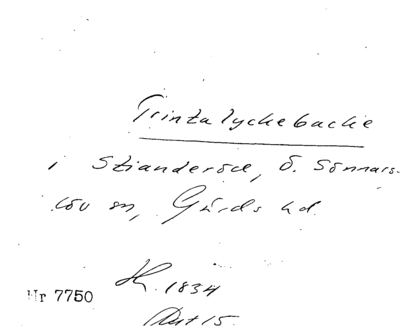 Trintalyckebacke
i Skianderöd, Ö. Sönnars-
löv sn, Gärds hd.
Nr 7750
1834
15.